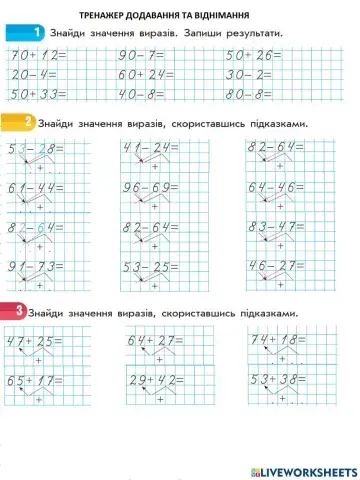 ТРЕНАЖЕР ДОДАВАННЯ ТА ВІДНІМАННЯ
1 Знайди значення виразів. Запиши результати.
70+12= 90-7= 50+26=
20-4= 60+24= 30-2=
50+33= 40-8= 80-8=
2 Знайди значення виразів, скориставшись підказками.
53-28= 41-24= 82-64=
+ + +
61-44= 96-69= 64-46=
+ + +
82-64= 92-65= 83-47=
+ + +
91-73= 53-25= 46-27=
+ + +
3 Знайди значення виразів, скориставшись підказками.
47+25= 64+27= 74+18=
+ + +
65+17= 29+42= 53+38=
+ + +
LIVEWORKSHEETS